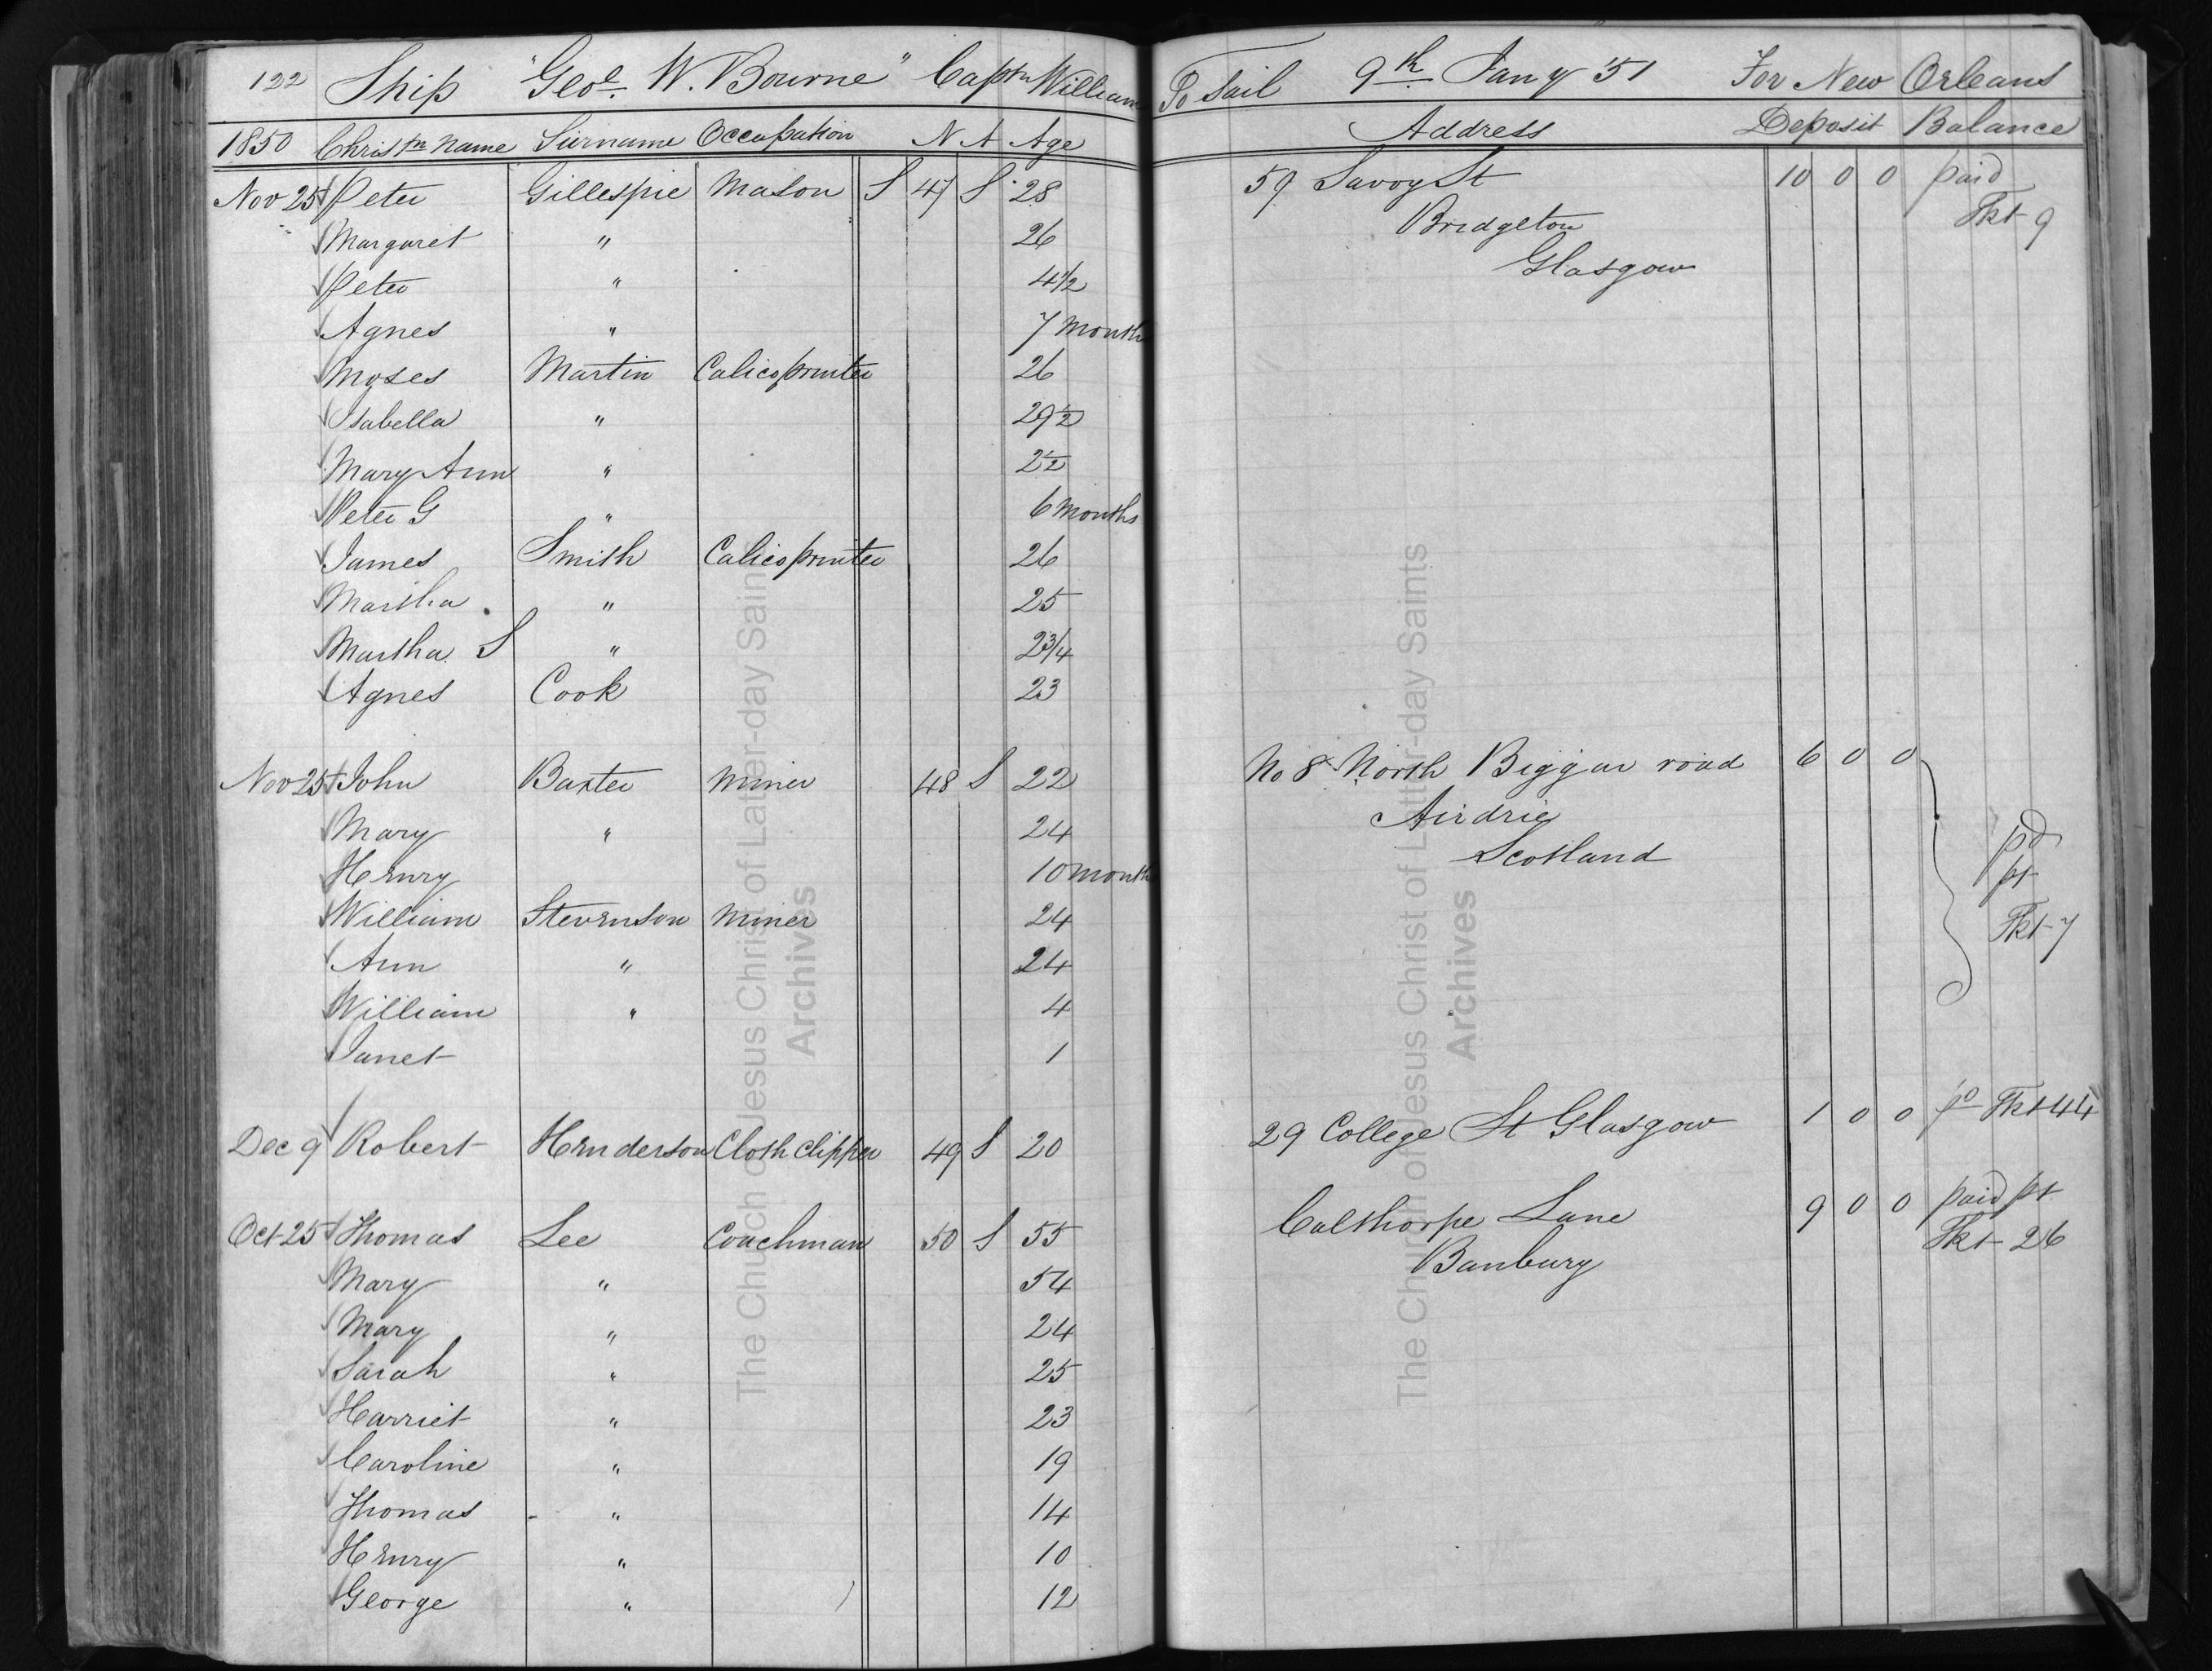 122 Ship "Geoe. W. Bourne" Captn William
1850 Christn name Surname Occupation N A Age
Nov 25 Peter Gillespie Mason S 47 S 28
Margaret " 26
Peter " 4 1/2
Agnes " 7 Months
Moses Martin Calico printer 26
Isabella " 29 1/2
Mary Ann " 2 1/2
Peter G " 6 Months
James Smith Calico printer 26
Martha " 25
Martha S " 2 3/4
Agnes Cook 23
Nov 25 John Baxter Miner 48 S 22
Mary " 24
Henry 10 month
William Stevenson Miner 24
Ann " 24
William " 4
Janet 1
Dec 9 Robert Henderson Cloth Clipper 49 S 20
Oct 25 Thomas Lee Coachman 50 S 55
Mary " 54
Mary " 24
Sarah " 25
Harriet " 23
Caroline " 19
Thomas " 14
Henry " 10
George " 12
To Sail 9th Jany 51 For New Orleans
Address Deposit Balance
59 Savoy St 10 0 0 paid
Bridgeton Tkt 9
Glasgow
No 8 North Biggar road 6 0 0
Airdrie pd
Scotland pt
Tkt 7
29 College St Glasgow 1 0 0 pd Tkt 44
Calthorpe Lane 9 0 0 paid pt
Banbury Tkt 26
The Church of Jesus Christ of Latter-day Saints
Archives
The Church of Jesus Christ of Latter-day Saints
Archives